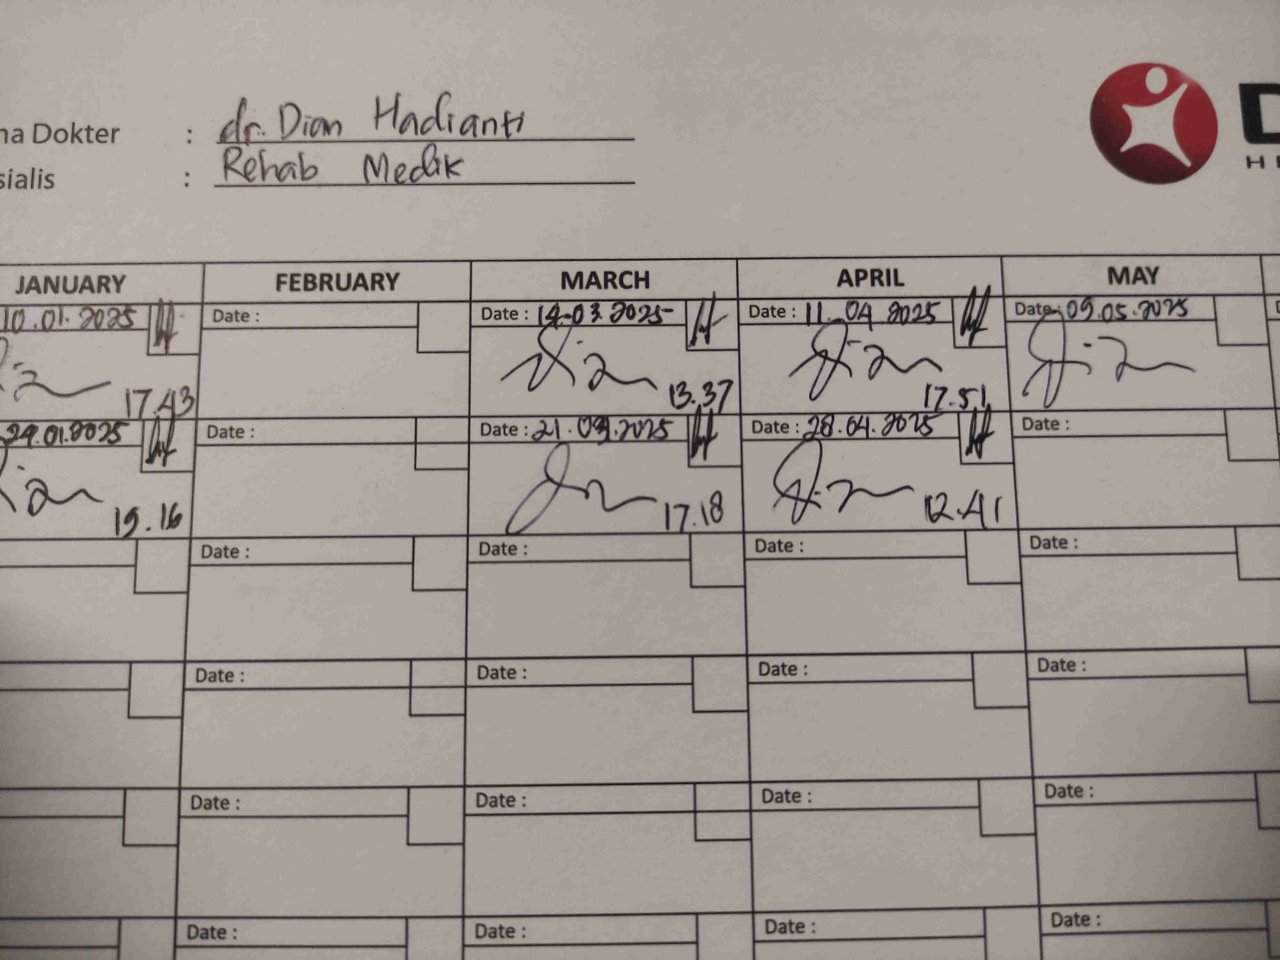 na Dokter : dr. Dian Hadianti
sialis : Rehab Medik
D
H
JANUARY FEBRUARY MARCH APRIL MAY
10.01.2025 Date : Date : 14-03.2025 Date : 11.04.2025 Date : 09.05.2025
17.43 13.37 17.51
29.01.2025 Date : Date : 21.03.2025 Date : 28.04.2025 Date :
19.16 17.18 12.41
Date : Date : Date : Date :
Date : Date : Date : Date :
Date : Date : Date : Date :
Date : Date : Date : Date :